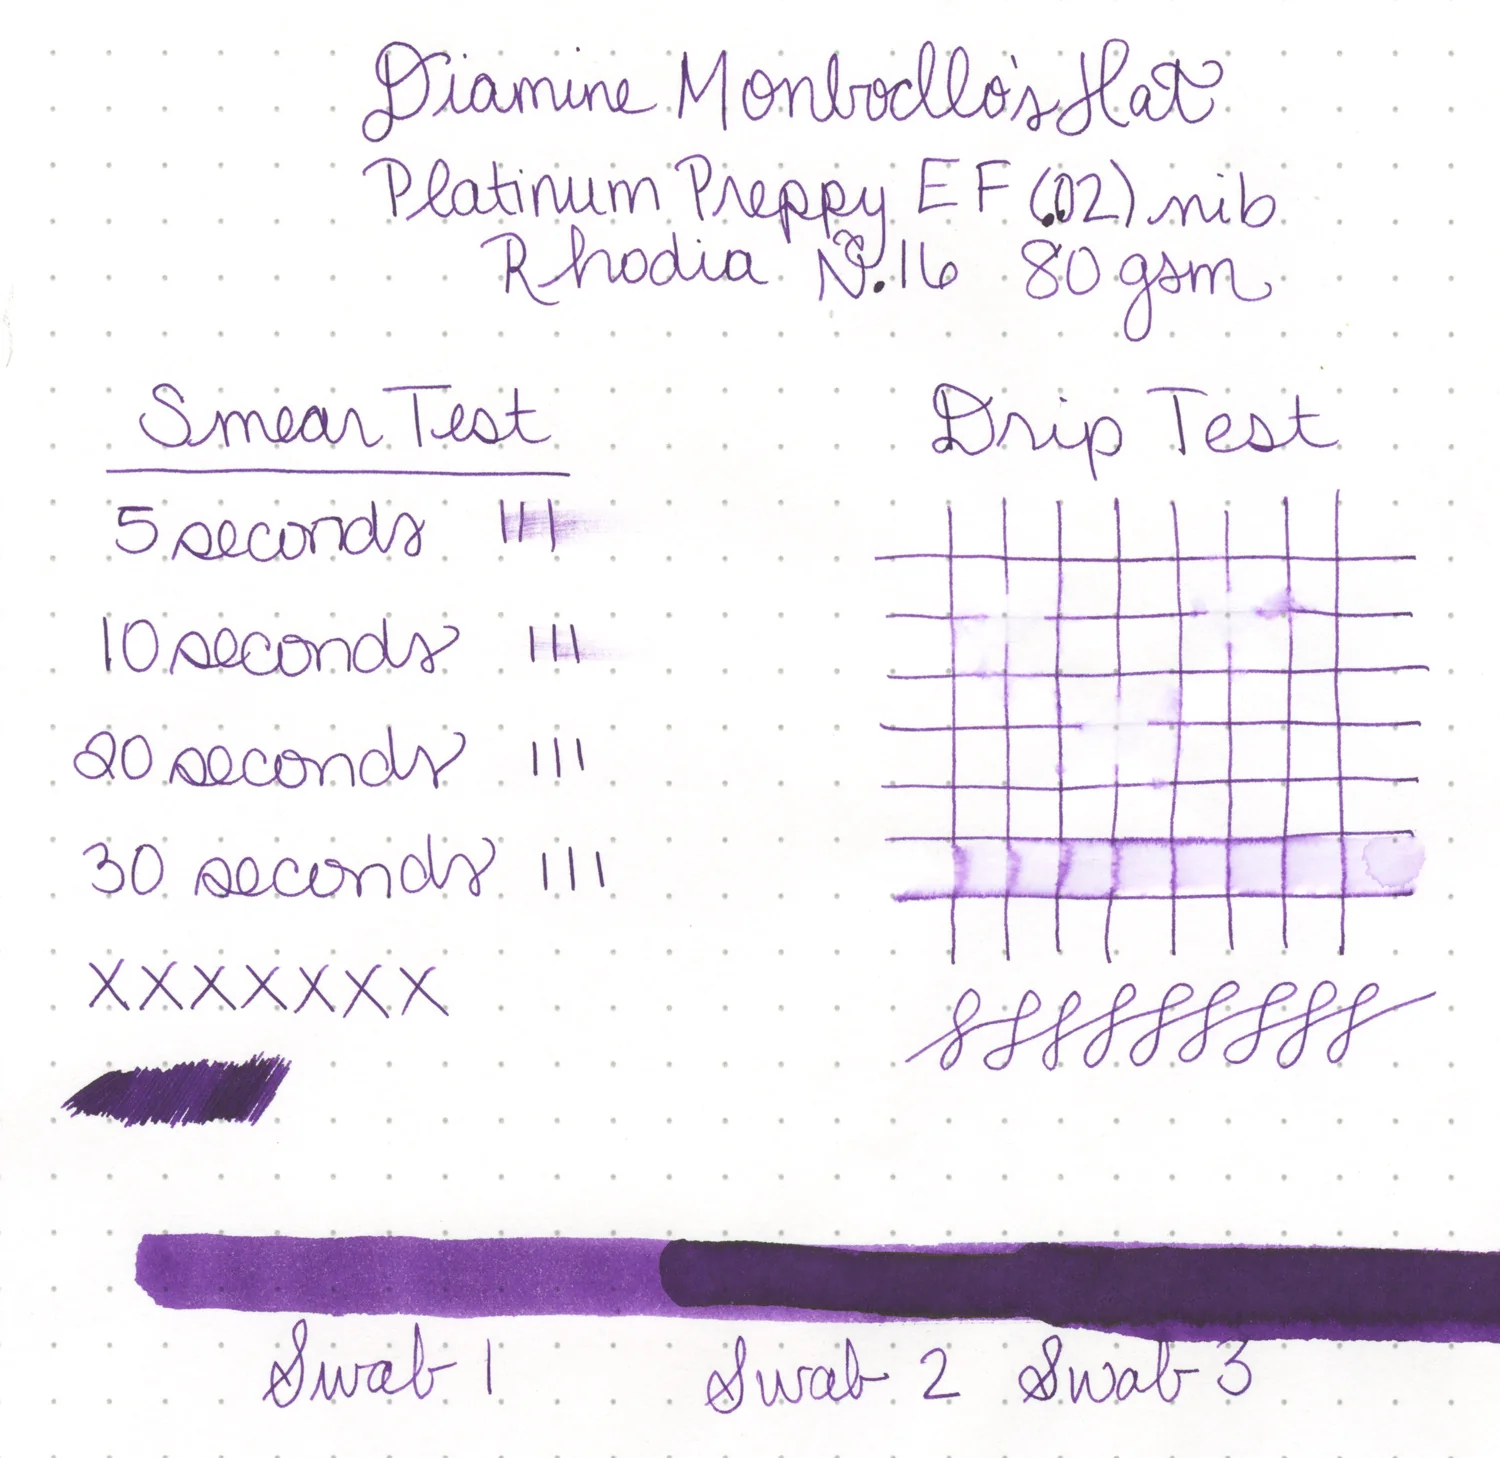 Diamine Monboddo's Hat
Platinum Preppy EF (.02) nib
Rhodia N.16 80 gsm
Smear Test
5 seconds
10 seconds
20 seconds
30 seconds
XXXXXXX
Drip Test
Swab 1
Swab 2
Swab 3